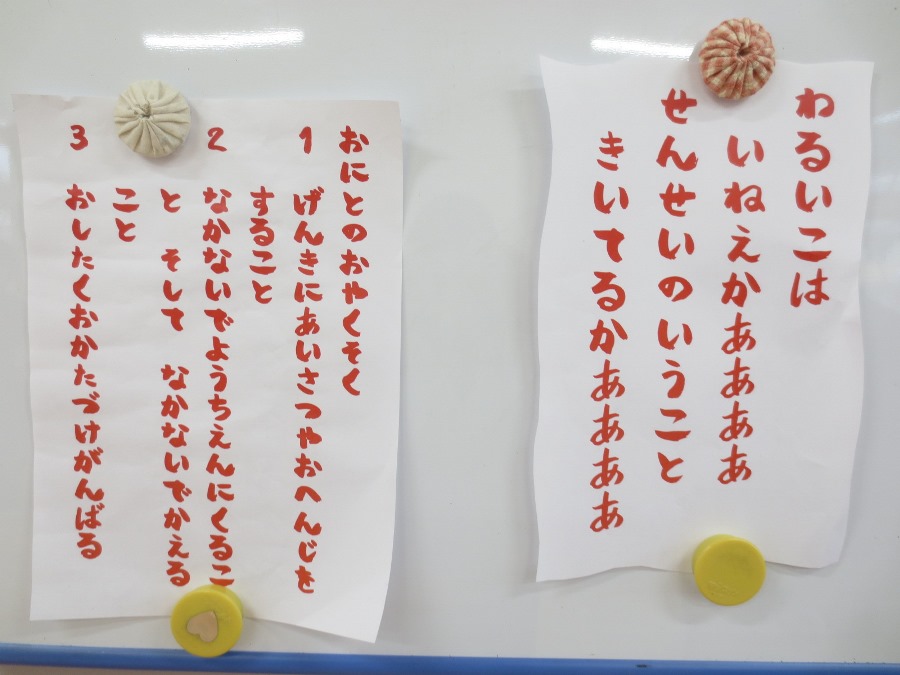 わるいこは
いねえかああああ
せんせいのいうこと
きいてるかああああ
おにとのおやくそく
1 げんきにあいさつやおへんじを
すること
2 なかないでようちえんにくるこ
と そして なかないでかえる
こと
3 おしたくおかたづけがんばる